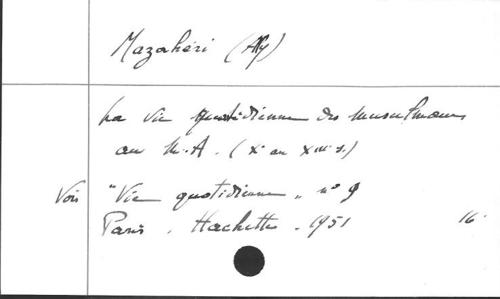 Mazahéri (Aly)
La Vie quotidienne des Musulmans
au M.A. (Xe au XIIIe s.)
Voir "Vie quotidienne" n° 9
Paris. Hachette. 1951 16